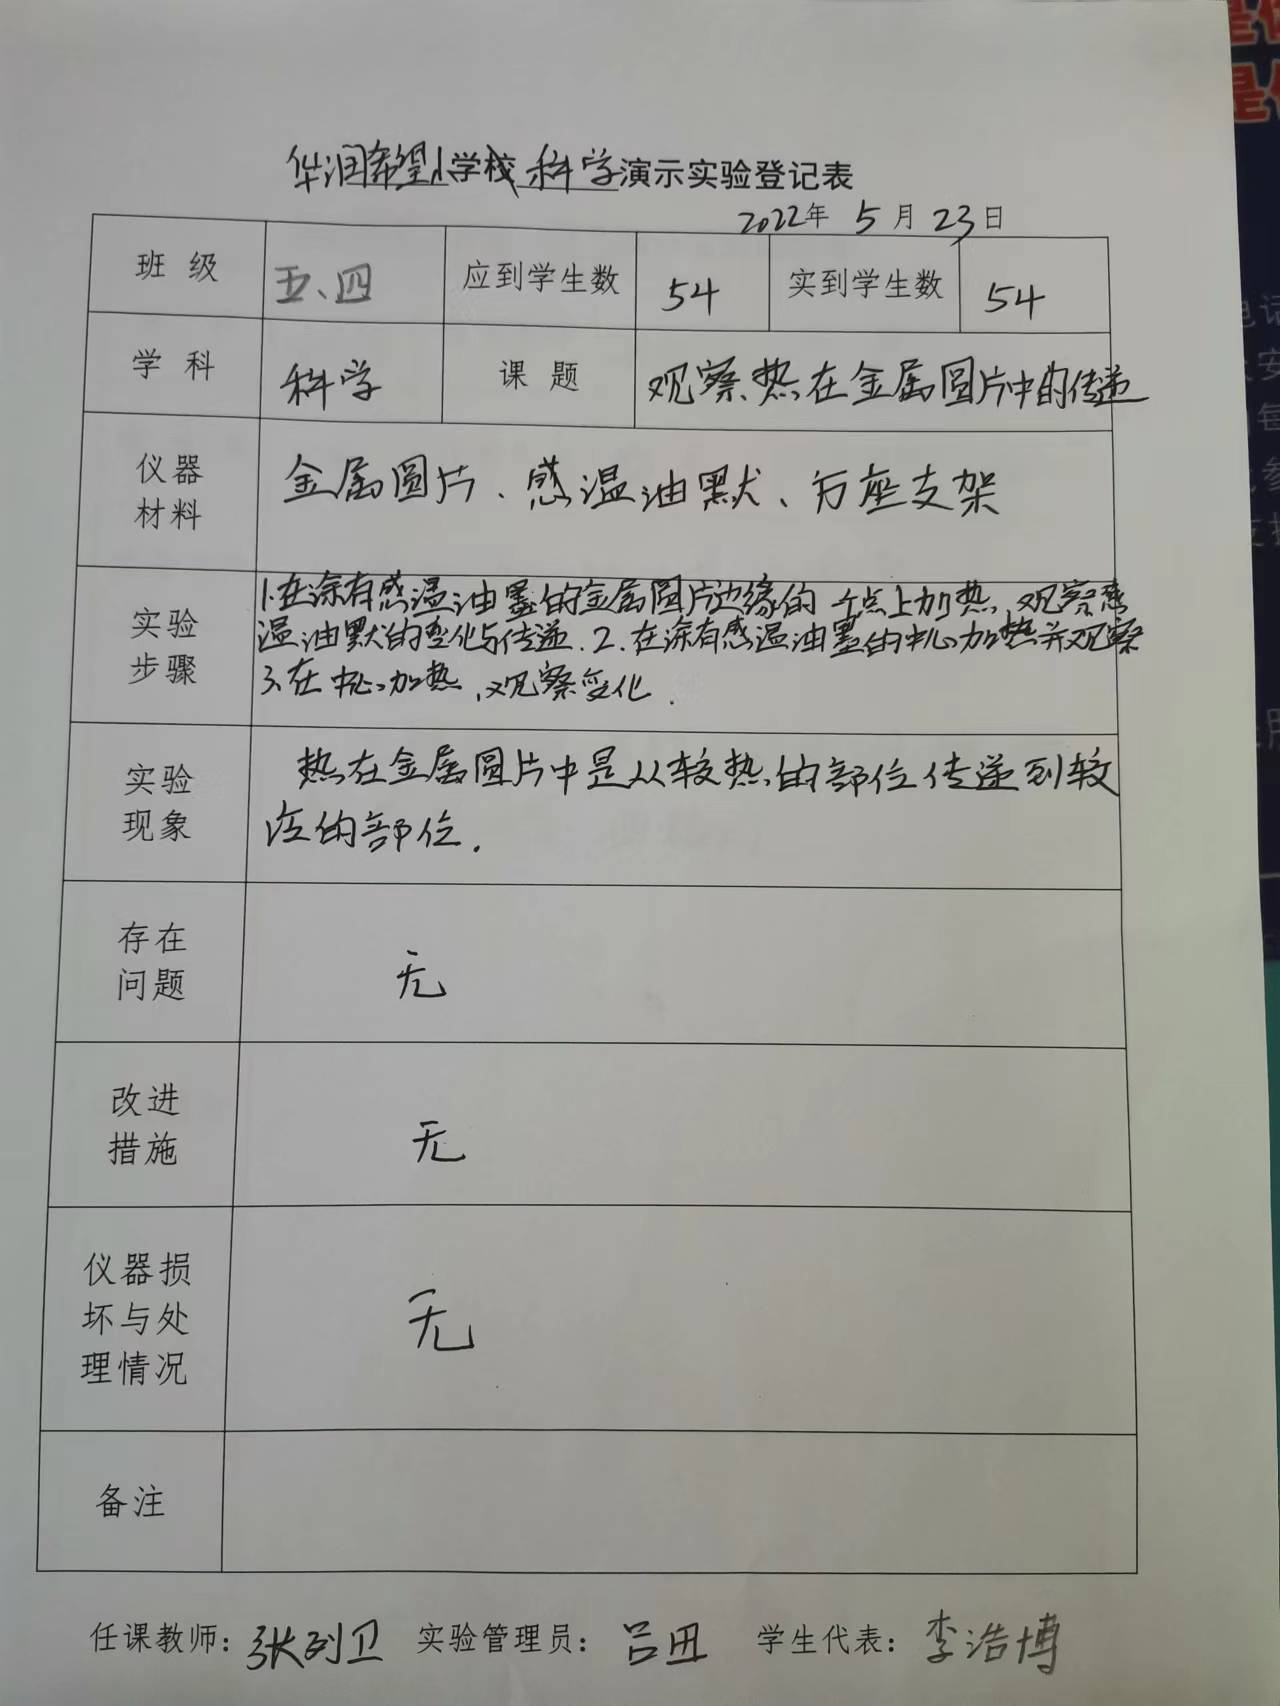 华润希望小学校科学演示实验登记表
2022年 5月 23日
班 级 五、四 应到学生数 54 实到学生数 54
学 科 科学 课 题 观察热在金属圆片中的传递
仪器
材料
金属圆片、感温油默、方座支架
实验
步骤
1.在涂有感温油墨的金属圆片边缘的一点上加热，观察感
温油默的变化与传递.2.在涂有感温油墨的中心加热并观察
3.在中心加热,观察变化.
实验
现象
热在金属圆片中是从较热的部位传递到较
冷的部位.
存在
问题
无
改进
措施
无
仪器损
坏与处
理情况
无
备注
任课教师：张列卫 实验管理员：吕丑 学生代表：李浩博